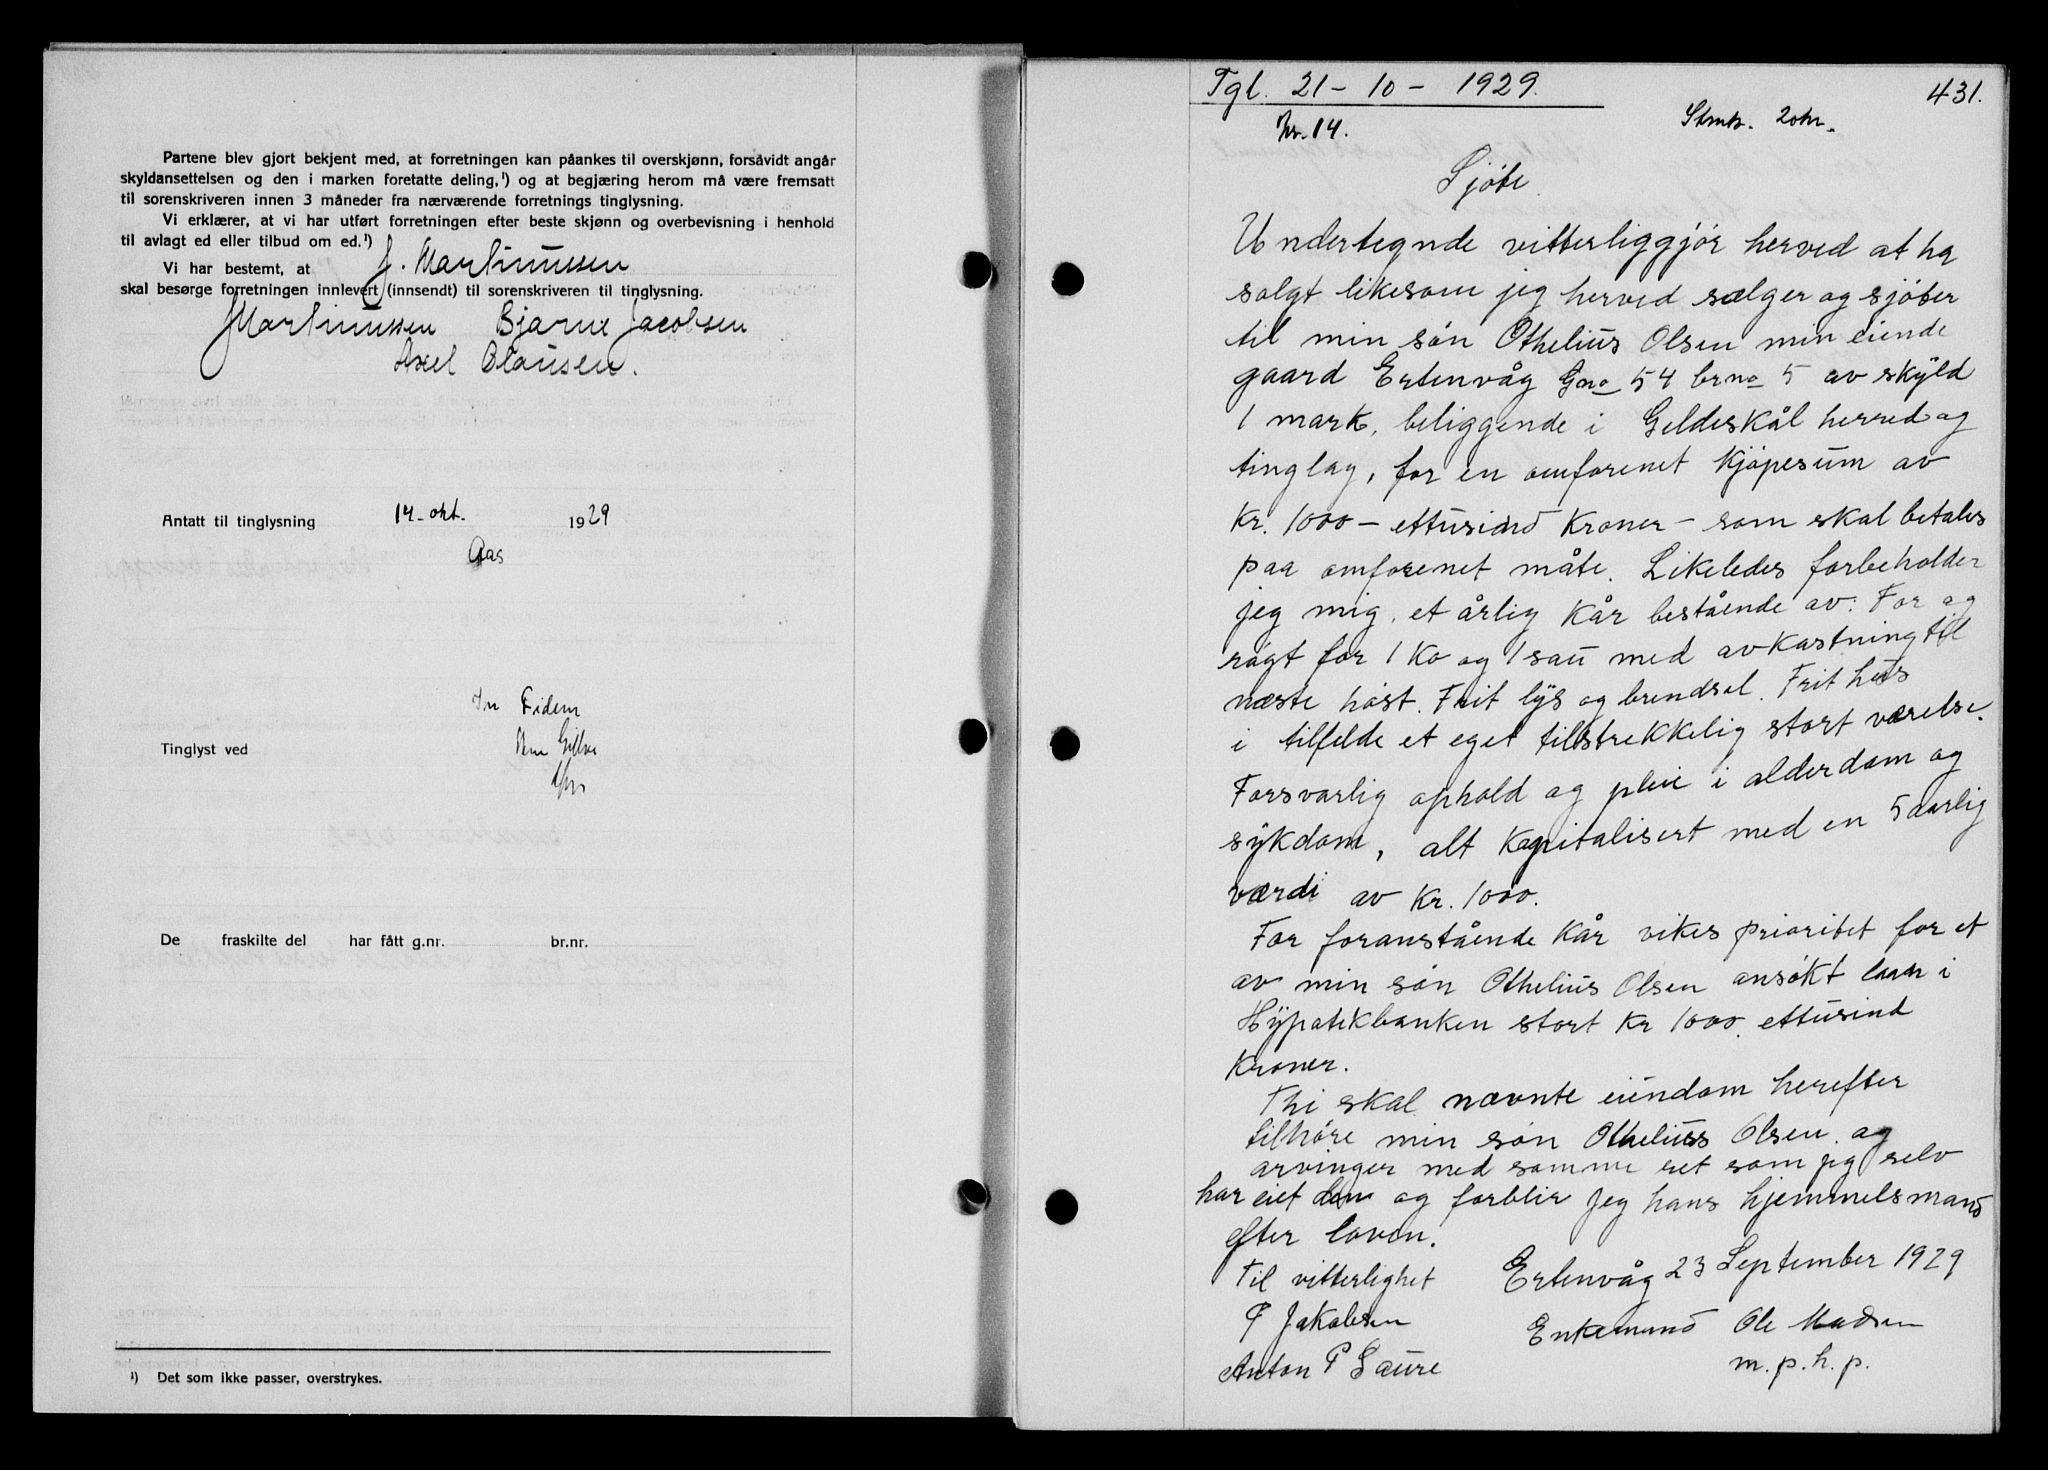 Partene blev gjort bekjent med, at forretningen kan påankes til overskjønn, forsåvidt angår
skyldansettelsen og den i marken foretatte deling,¹) og at begjæring herom må være fremsatt
til sorenskriveren innen 3 måneder fra nærværende forretnings tinglysning.
Vi erklærer, at vi har utført forretningen efter beste skjønn og overbevisning i henhold
til avlagt ed eller tilbud om ed.¹)
Vi har bestemt, at J. Martinussen
skal besørge forretningen innlevert (innsendt) til sorenskriveren til tinglysning.
J Martinussen Bjarne Jacobsen
Axel Clausen.
Antatt til tinglysning 14. okt. 1929
Aas
In Fidem
Tinglyst ved
De fraskilte del har fått g.nr. br.nr.
¹) Det som ikke passer, overstrykes.
Tgl. 21-10-1929.
431.
Nr. 14.
Stmk. 2 okr.
Sjöte
Undertegnde vitterliggjör herved at ha
solgt likesom jeg herved sælger og sjöter
til min sön Othelius Olsen min eiende
gaard Ertenvåg Gno 54 brno 5 av skyld
1 mark, beliggende i Geldeskål herred og
tinglag, for en omforenet kjöpesum av
kr. 1000 - ettusind kroner - som skal betales
paa omforenet måte. Likeledes forbeholder
jeg mig et årlig kår bestående av: For og
rögt for 1 ko og 1 sau med avkastning til
næste höst. Frit lys og brendsel. Frit hus
i tilfelde et eget tilstrekkelig stort værelse.
Forsvarlig ophold og pleie i alderdom og
sykdom, alt kapitalisert med en 5 aarlig
værdi av kr. 1000.
For foranstående kår vikes prioritet for et
av min sön Othelius Olsen ansökt laan i
Hypotekbanken stort kr 1000. ettusind
kroner.
Thi skal nævnte eiendom herefter
tilhöre min sön Othelius Olsen og
arvinger med samme ret som jeg selv
har eiet den og forblir jeg hans hjemmelsmand
efter loven.
Til vitterlighet
Ertenvåg 23 September 1929
P Jakobsen
Enkemand Ole Madsen
Anton P Saure
m. p. h. p.